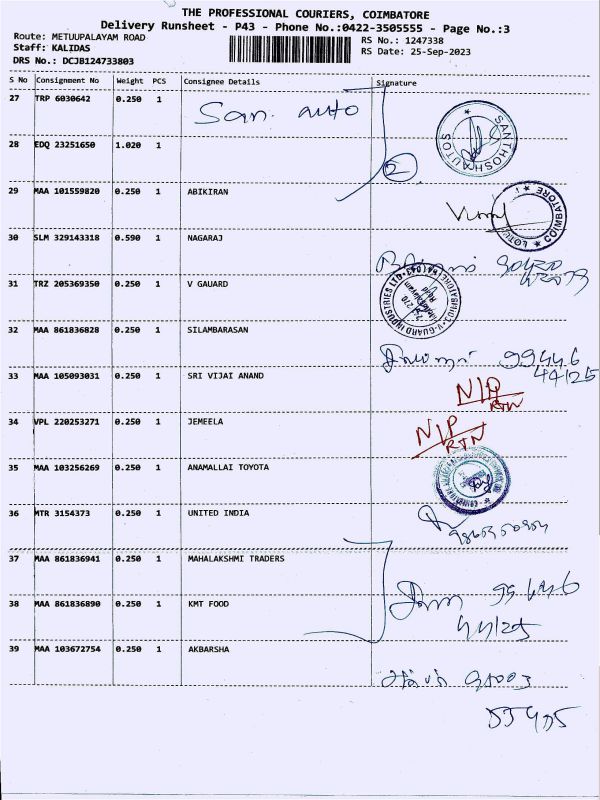 THE PROFESSIONAL COURIERS, COIMBATORE
Delivery Runsheet - P43 - Phone No.:0422-3505555 - Page No.:3
Route: METUUPALAYAM ROAD
RS No.: 1247338
Staff: KALIDAS
RS Date: 25-Sep-2023
DRS No.: DCJB124733803
S No Consignment No Weight PCS Consignee Details Signature
27 TRP 6030642 0.250 1 San. auto
SANTHOSH AUTOS
28 EDQ 23251650 1.020 1
2
29 MAA 101559820 0.250 1 ABIKIRAN
COIMBATORE
30 SLM 329143318 0.590 1 NAGARAJ
31 TRZ 205369350 0.250 1 V GAUARD
V-GUARD INDUSTRIES LTD
32 MAA 861836828 0.250 1 SILAMBARASAN
99446
44125
33 MAA 105093031 0.250 1 SRI VIJAI ANAND
N/P
RTN
34 VPL 220253271 0.250 1 JEMEELA
N/P
RTN
35 MAA 103256269 0.250 1 ANAMALLAI TOYOTA
36 MTR 3154373 0.250 1 UNITED INDIA
37 MAA 861836941 0.250 1 MAHALAKSHMI TRADERS
38 MAA 861836890 0.250 1 KMT FOOD
99446
44125
39 MAA 103672754 0.250 1 AKBARSHA